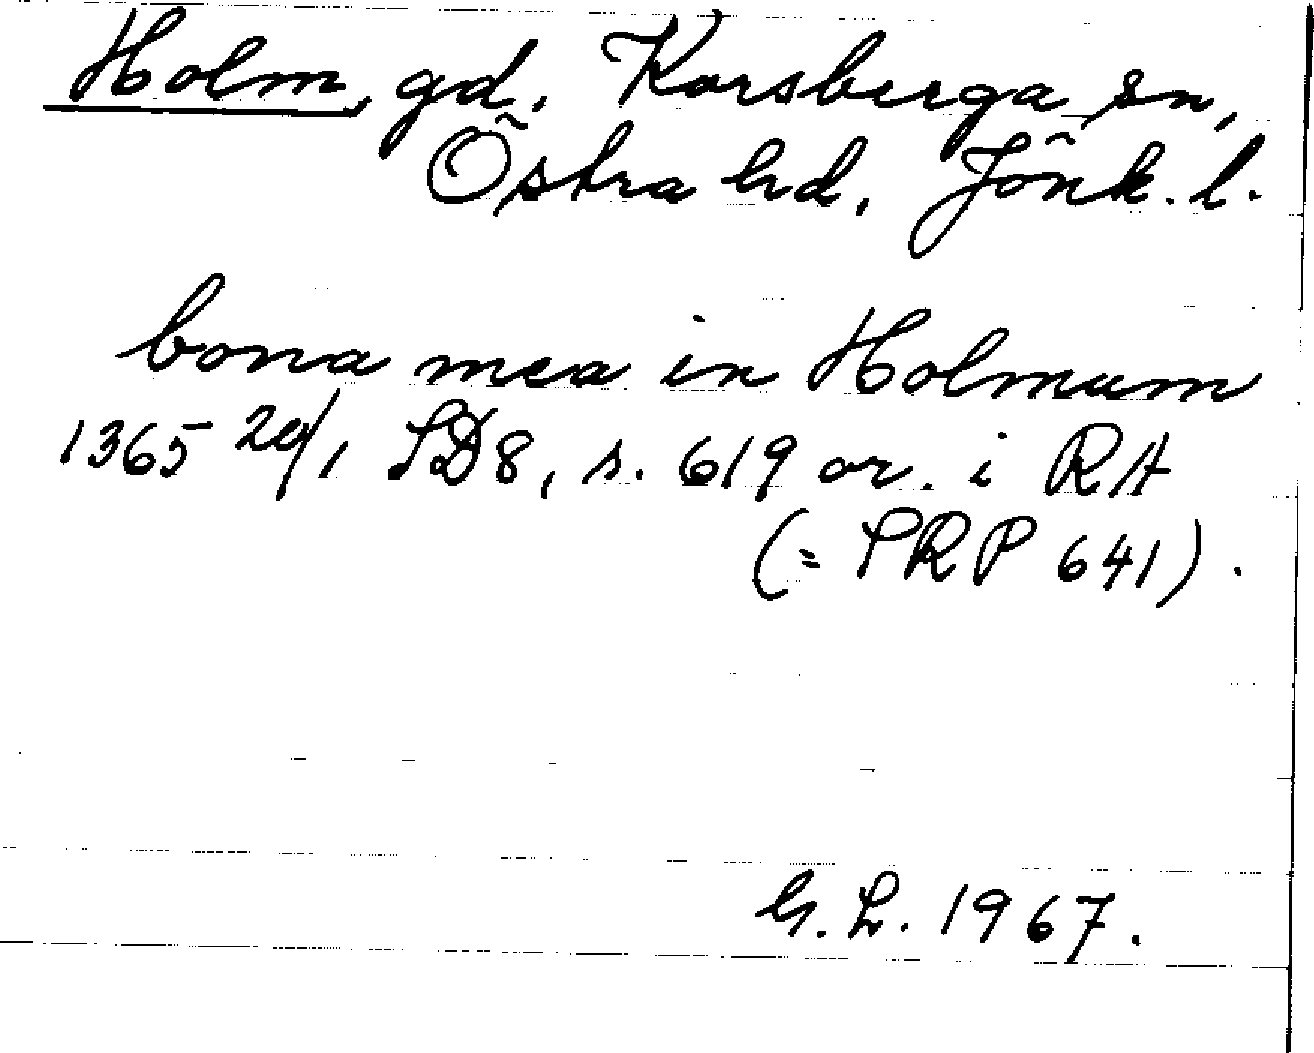 Holm, gd. Korsberga sn,
Östra hd, Jönk. l.
bona mea in Holmum
1365 20/1 SD8, s. 619 or. i RA
(= SRP 641).
G. L. 1967.